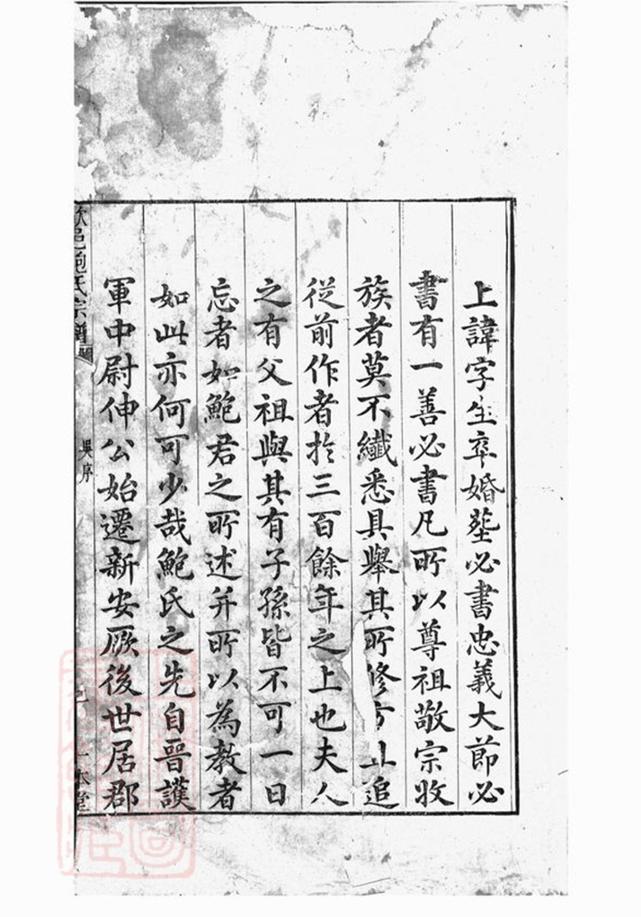 上諱字生卒婚塟必書忠義大節必
書有一善必書凡所以尊祖敬宗收
族者莫不纖悉具舉其所修 追
從前作者於三百餘年之上也夫人
之有父祖與其有子孫皆不可一日
忘者如鮑君之所述并所以為教者
如此亦何可少哉鮑氏之先自晉護
軍中尉伸公始遷新安厥後世居郡
歙邑鮑氏宗譜
吳序
一本堂